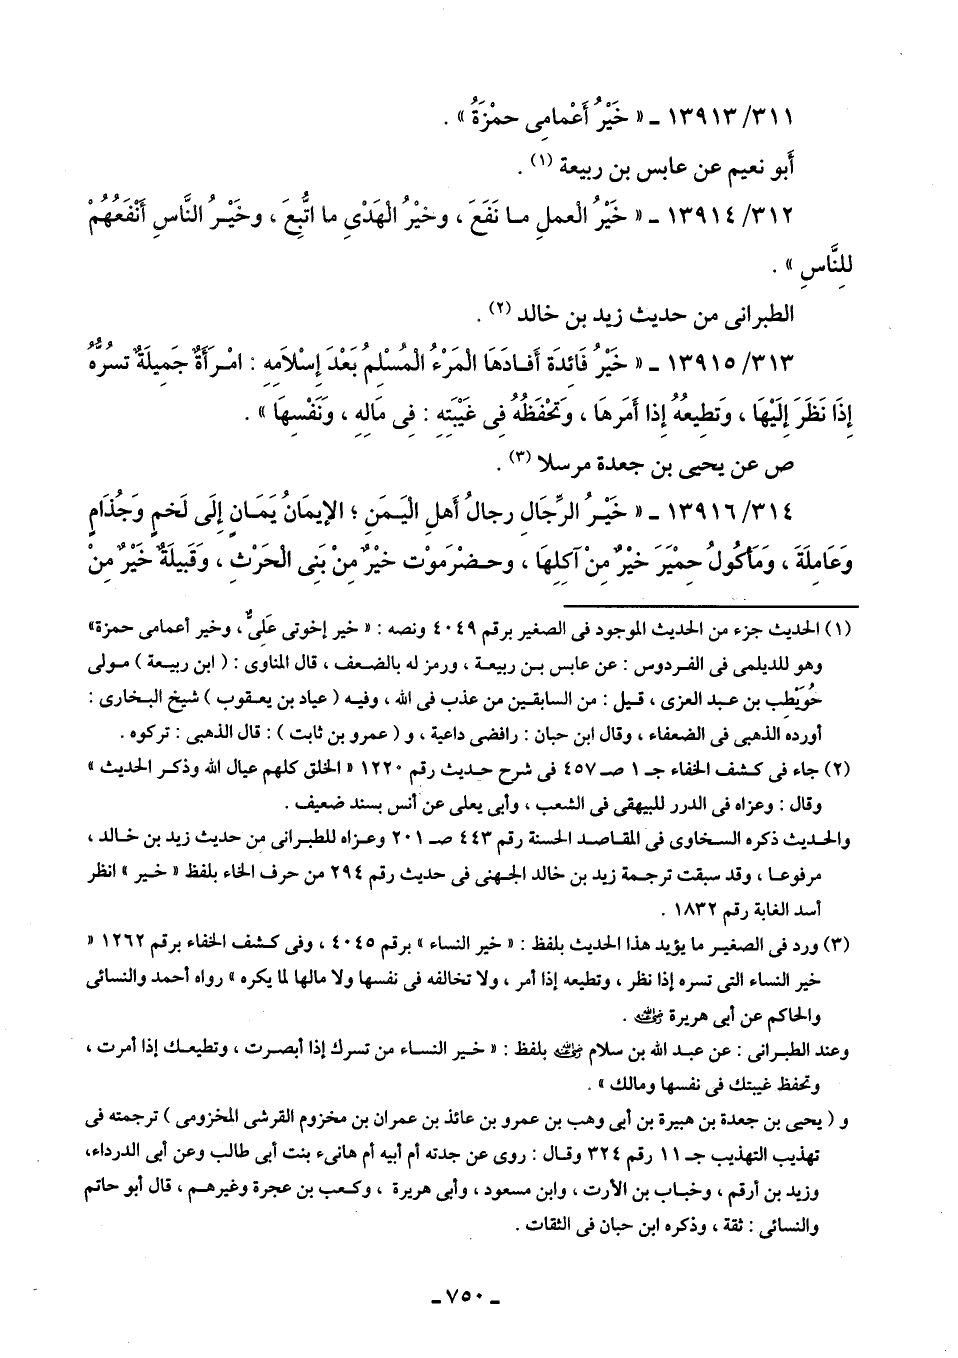 ٣١١/ ١٣٩١٣ ـ « خَيْرُ أَعْمامِى حمْزَةُ » .
أَبو نعيم عن عابس بن ربيعة (١) .
٣١٢/ ١٣٩١٤ ـ « خَيْرُ الْعملِ مـا نَفَعَ ، وخيْرُ الْهَدْىِ ما اتُّبِعَ ، وخَيْـرُ النَّاسِ أَنْفَعُهُمْ
للِنَّاسِ » .
الطبرانى من حديث زيد بن خالد (٢) .
٣١٣/ ١٣٩١٥ ـ « خَيْرُ فَائِدَة أَفـادَهَا الْمَرْءُ الْمُسْلِمُ بَعْدَ إِسْلَامِهِ : امْـرَأَةٌ جَمِيلَةٌ تسُرُّهُ
إِذَا نَظَرَ إِلَيْهَا ، وَتطِيعُهُ إِذا أَمَرهَا ، وَتَحْفَظُهُ فِى غَيْبَتِهِ : فِى مَالِهِ ، وَنَفْسِهَا » .
ص عن يحيى بن جعدة مرسلا (٣) .
٣١٤/ ١٣٩١٦ ـ « خَيْـرُ الرِّجَالِ رجالُ أَهلِ الْيَـمَنِ ؛ الإِيمَانُ يَمَـانٍ إِلَى لَخمٍ وَجُذَامٍ
وَعَامِلَةَ ، وَمَأكُولُ حِمْيَرَ خَيْرٌ مِنْ آكِلِهَا ، وحـضْرَموْت خيْرٌ مِنْ بَنِى الْحَرْثِ ، وَقَبِيلَةٌ خَيْرٌ مِنْ
(١) الحديث جزء من الحديث الموجود فى الصغير برقم ٤٠٤٩ ونصه : « خير إخوتى عَلىٌّ ، وخير أعمامى حمزة»
وهو للديلمى فى الفردوس : عن عابس بـن ربيعـة ، ورمز له بالضـعف ، قال المناوى : ( ابن ربيعة ) مـولى
حُوَيْطِب بن عبد العزى ، قـيل : من السابقـين من عذب فى الله ، وفيـه ( عياد بن يعـقوب ) شيخ البـخارى :
أورده الذهبى فى الضعفاء ، وقال ابن حبان : رافضى داعية ، و ( عمرو بن ثابت ) : قال الذهبى : تركوه .
(٢) جاء فى كشف الخفاء جـ ١ صـ ٤٥٧ فى شرح حديث رقم ١٢٢٠ « الخلق كلهم عيال الله وذكر الحديث »
وقال : وعزاه فى الدرر للبيهقى فى الشعب ، وأبى يعلى عن أنس بسند ضعيف .
والحديث ذكره السخاوى فى المقاصد الحسنة رقم ٤٤٣ صـ ٢٠١ وعـزاه للطبرانى من حديث زيد بن خـالد ،
مرفوعـا ، وقد سبقت ترجمة زيد بن خالد الجـهنى فى حديث رقم ٢٩٤ من حرف الخاء بلفظ « خـير » انظر
أسد الغابة رقم ١٨٣٢ .
(٣) ورد فى الصغيـر ما يؤيد هذا الحديث بلفظ : « خير النساء » برقم ٤٠٤٥ ، وفى كـشف الخفاء برقم ١٢٦٢ «
خير النساء التى تسره إذا نظر ، وتطيعه إذا أمر ، ولا تخالفه فى نفسها ولا مالها لما يكره » رواه أحمد والنسائى
والحاكم عن أبى هريرة رضي الله عنه .
وعند الطبـرانى : عن عبـد الله بن سلام رضي الله عنه بلفظ : « خـير النسـاء من تسرك إذا أبصـرت ، وتطيعـك إذا أمرت ،
وتحفظ غيبتك فى نفسها ومالك » .
و ( يحيى بن جعدة بن هبيرة بن أبى وهب بن عمرو بن عائذ بن عمران بن مخزوم القرشى المخزومى ) ترجمته فى
تهذيب التهذيب جـ ١١ رقم ٣٢٤ وقال : روى عن جدته أم أبيه أم هانىء بنت أبى طالب وعن أبى الدرداء،
وزيد بن أرقم ، وخباب بن الأرت ، وابن مسعود ، وأبى هريرة ، وكـعب بن عجرة وغيرهـم ، قال أبو حاتم
والنسائى : ثقة ، وذكره ابن حبان فى الثقات .
ـ ٧٥٠ ـ